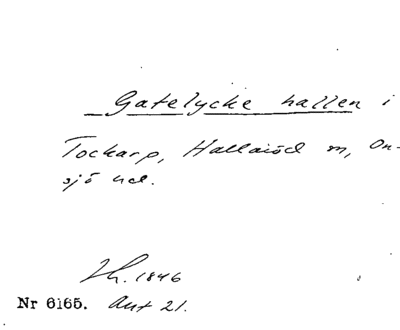 Gatelycke hallen i
Tockarp, Hallaiöd m, On-
sjö hd.
Th. 1846
Nr 6165. Ant 21.